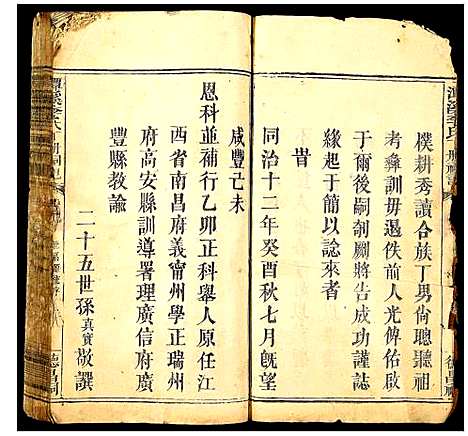 樸耕秀讀合族丁男尙聰聽祖
考彝訓毋遏佚前人光俾佑啟
于爾後嗣剞劂將告成功謹誌
緣起于簡以諗來者
旹
同治十二年癸酉秋七月旣望
咸豐亡未
恩科並補行乙卯正科舉人原任江
西省南昌府義甯州學正瑞州
府高安縣訓導署理廣信府廣
豐縣教諭
二十五世孫真實敬譔